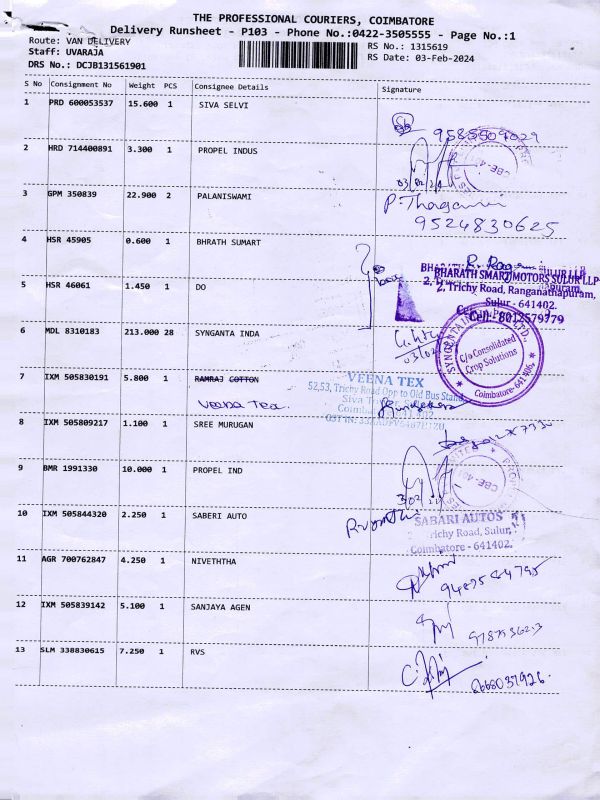 THE PROFESSIONAL COURIERS, COIMBATORE
Delivery Runsheet - P103 - Phone No.:0422-3505555 - Page No.:1
Route: VAN DELIVERY
RS No.: 1315619
Staff: UVARAJA
RS Date: 03-Feb-2024
DRS No.: DCJB131561901
S No Consignment No Weight PCS Consignee Details Signature
1 PRD 600053537 15.600 1 SIVA SELVI
9585509029
2 HRD 714400891 3.300 1 PROPEL INDUS
3 GPM 350839 22.900 2 PALANISWAMI
P. Thagamani
9524830625
4 HSR 45905 0.600 1 BHRATH SUMART
BHARATH SMART MOTORS SULUR LLP
2, Trichy Road, Ranganathapuram,
Sulur - 641402.
Cell: 8012579779
5 HSR 46061 1.450 1 DO
6 MDL 8310183 213.000 28 SYNGANTA INDA
C/o Consolidated
Crop Solutions
Coimbatore-641 406.
7 IXM 505830191 5.800 1 RAMRAJ COTTON
Veena Tex.
VEENA TEX
52,53, Trichy Road Opp to Old Bus Stand
8 IXM 505809217 1.100 1 SREE MURUGAN
9 BMR 1991330 10.000 1 PROPEL IND
10 IXM 505844320 2.250 1 SABERI AUTO
SABARI AUTOS
Trichy Road, Sulur,
Coimbatore - 641402.
11 AGR 700762847 4.250 1 NIVETHTHA
12 IXM 505839142 5.100 1 SANJAYA AGEN
13 SLM 338830615 7.250 1 RVS
8668037926.